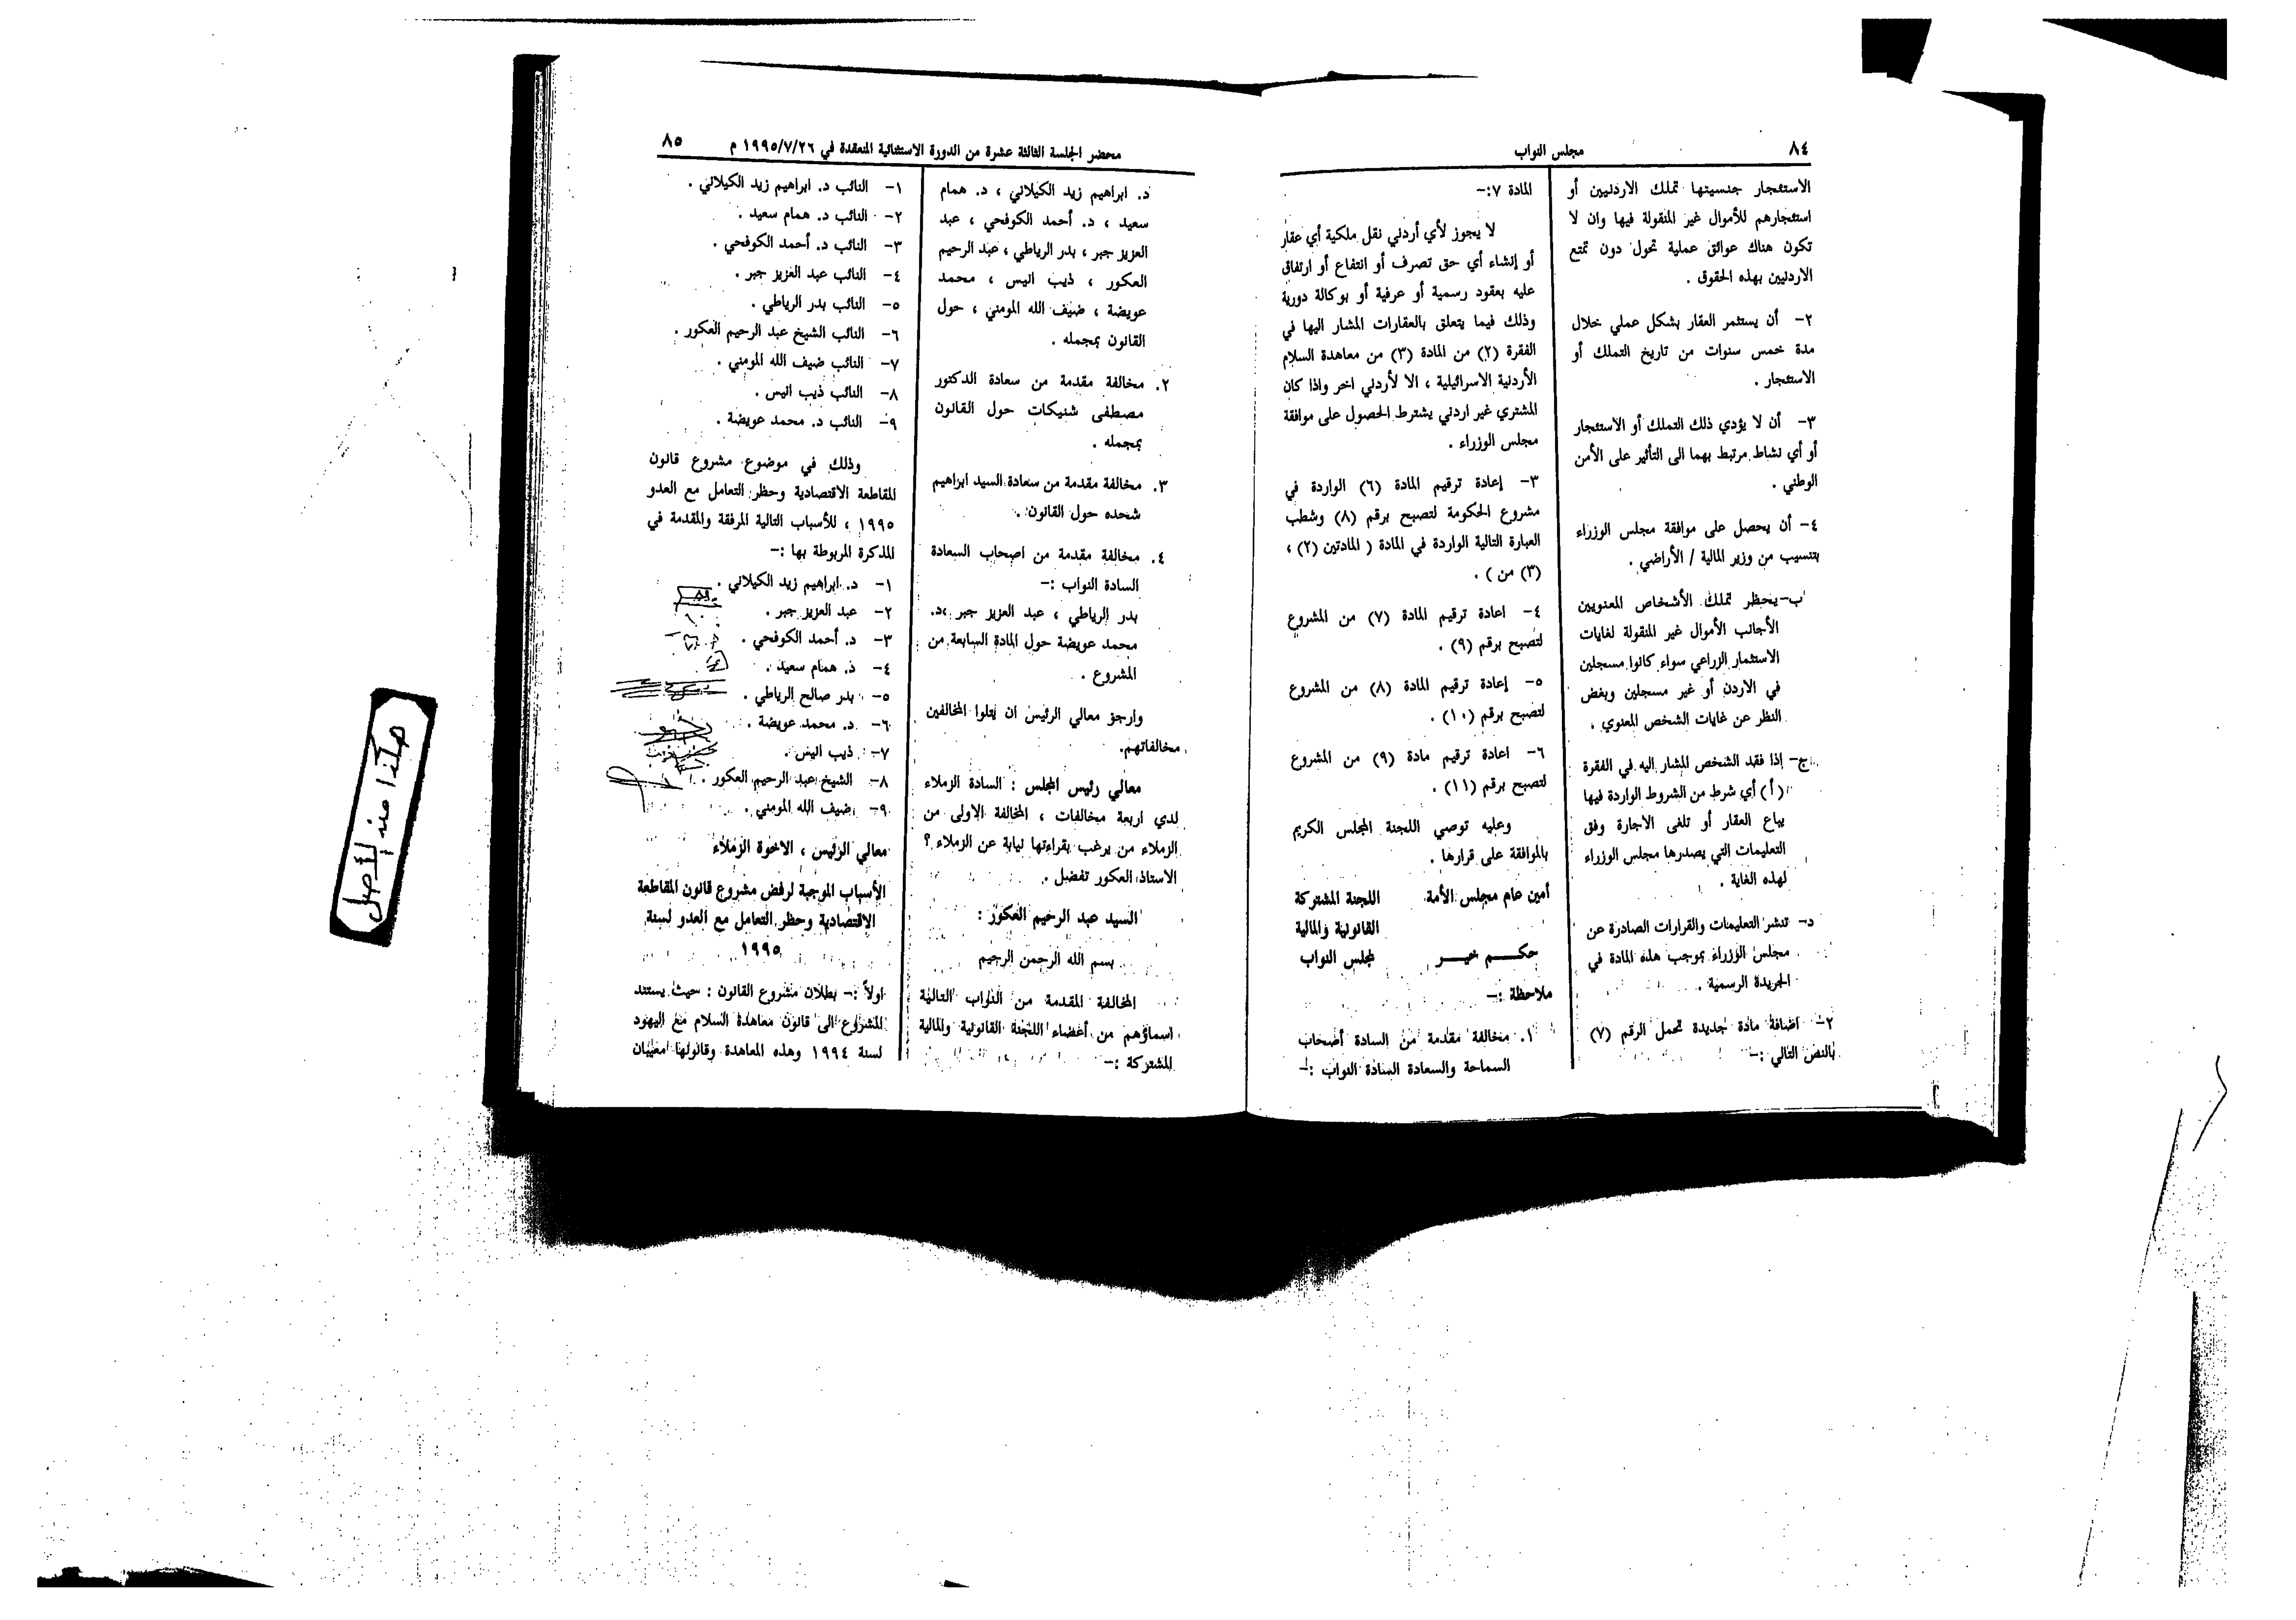 ٨٤
مجلس النواب
الاستئجار جنسيتها تملك الاردنيين أو
استئجارهم للأموال غير المنقولة فيها وان لا
تكون هناك عوائق عملية تحول دون تمتع
الاردنيين بهذه الحقوق .
٢- أن يستثمر العقار بشكل عملي خلال
مدة خمس سنوات من تاريخ التملك أو
الاستئجار .
٣- أن لا يؤدي ذلك التملك أو الاستئجار
أو أي نشاط مرتبط بهما الى التأثير على الأمن
الوطني .
٤- أن يحصل على موافقة مجلس الوزراء
بتنسيب من وزير المالية / الأراضي .
ب- يحظر تملك الأشخاص المعنويين
الأجانب الأموال غير المنقولة لغايات
الاستثمار الزراعي سواء كانوا مسجلين
في الاردن أو غير مسجلين وبغض
النظر عن غايات الشخص المعنوي .
ج- إذا فقد الشخص المشار اليه في الفقرة
(أ) أي شرط من الشروط الواردة فيها
يباع العقار أو تلغى الاجارة وفق
التعليمات التي يصدرها مجلس الوزراء
لهذه الغاية .
د- تنشر التعليمات والقرارات الصادرة عن
مجلس الوزراء بموجب هذه المادة في
الجريدة الرسمية .
٢- اضافة مادة جديدة تحمل الرقم (٧)
بالنص التالي :-
المادة ٧:-
لا يجوز لأي أردني نقل ملكية أي عقار
أو إنشاء أي حق تصرف أو انتفاع أو ارتفاق
عليه بعقود رسمية أو عرفية أو بوكالة دورية
وذلك فيما يتعلق بالعقارات المشار اليها في
الفقرة (٢) من المادة (٣) من معاهدة السلام
الأردنية الاسرائيلية ، الا لأردني اخر واذا كان
المشتري غير اردني يشترط الحصول على موافقة
مجلس الوزراء .
٣- إعادة ترقيم المادة (٦) الواردة في
مشروع الحكومة لتصبح برقم (٨) وشطب
العبارة التالية الواردة في المادة ( المادتين (٢) ،
(٣) من ) .
٤- اعادة ترقيم المادة (٧) من المشروع
لتصبح برقم (٩) .
٥- إعادة ترقيم المادة (٨) من المشروع
لتصبح برقم (١٠) .
٦- اعادة ترقيم مادة (٩) من المشروع
لتصبح برقم (١١) .
وعليه توصي اللجنة المجلس الكريم
بالموافقة على قرارها .
أمين عام مجلس الأمة اللجنة المشتركة
القانونية والمالية
حكم خير لمجلس النواب
ملاحظة :-
١. مخالفة مقدمة من السادة أصحاب
السماحة والسعادة السادة النواب :-
محضر الجلسة الثالثة عشرة من الدورة الاستثنائية المنعقدة في ١٩٩٥/٧/٢٦ م
٨٥
د. ابراهيم زيد الكيلاني ، د. همام
سعيد ، د. أحمد الكوفحي ، عبد
العزيز جبر ، بدر الرياطي ، عبد الرحيم
العكور ، ذيب انيس ، محمد
عويضة ، ضيف الله المومني ، حول
القانون بمجمله .
٢. مخالفة مقدمة من سعادة الدكتور
مصطفى شنيكات حول القانون
بمجمله .
٣. مخالفة مقدمة من سعادة السيد ابراهيم
شحده حول القانون .
٤. مخالفة مقدمة من اصحاب السعادة
السادة النواب :-
بدر الرياطي ، عبد العزيز جبر ،د.
محمد عويضة حول المادة السابعة من
المشروع .
وارجو معالي الرئيس ان يتلوا المخالفين
مخالفاتهم.
معالي رئيس المجلس : السادة الزملاء
لدي اربعة مخالفات ، المخالفة الاولى من
الزملاء من يرغب بقراءتها نيابة عن الزملاء ؟
الاستاذ العكور تفضل .
السيد عبد الرحيم العكور :
بسم الله الرحمن الرحيم
المخالفة المقدمة من النواب التالية
اسماؤهم من أعضاء اللجنة القانونية والمالية
المشتركة :-
١- النائب د. ابراهيم زيد الكيلاني .
٢- النائب د. همام سعيد .
٣- النائب د. أحمد الكوفحي .
٤- النائب عبد العزيز جبر .
٥- النائب بدر الرياطي .
٦- النائب الشيخ عبد الرحيم العكور .
٧- النائب ضيف الله المومني .
٨- النائب ذيب انيس .
٩- النائب د. محمد عويضة .
وذلك في موضوع مشروع قانون
المقاطعة الاقتصادية وحظر التعامل مع العدو
١٩٩٥ ، للأسباب التالية المرفقة والمقدمة في
المذكرة المربوطة بها :-
١- د. ابراهيم زيد الكيلاني .
٢- عبد العزيز جبر .
٣- د. أحمد الكوفحي .
٤- د. همام سعيد .
٥- بدر صالح الرياطي .
٦- د. محمد عويضة .
٧- ذيب انيس .
٨- الشيخ عبد الرحيم العكور .
٩- ضيف الله المومني .
معالي الرئيس ، الاخوة الزملاء
الأسباب الموجبة لرفض مشروع قانون المقاطعة
الاقتصادية وحظر التعامل مع العدو لسنة
١٩٩٥
اولاً :- بطلان مشروع القانون : حيث يستند
المشروع الى قانون معاهدة السلام مع اليهود
لسنة ١٩٩٤ وهذه المعاهدة وقانونها معيبان
هكذا من الأصل